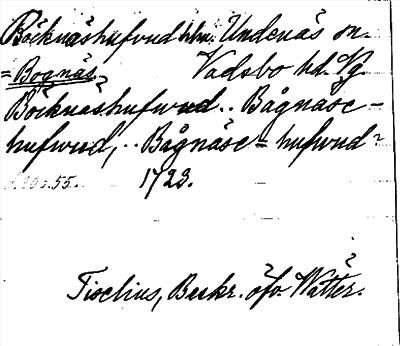 Böcknäshufvud hln. Undenäs sn.
= Bognäs. Vadsbo hd. Vg.
Böcknäshufwud .. Bågnäse-
hufwud, .. Bågnäse = hufwud?
55. 1723.
Tiselius, Beskr. öfv. Wätter.